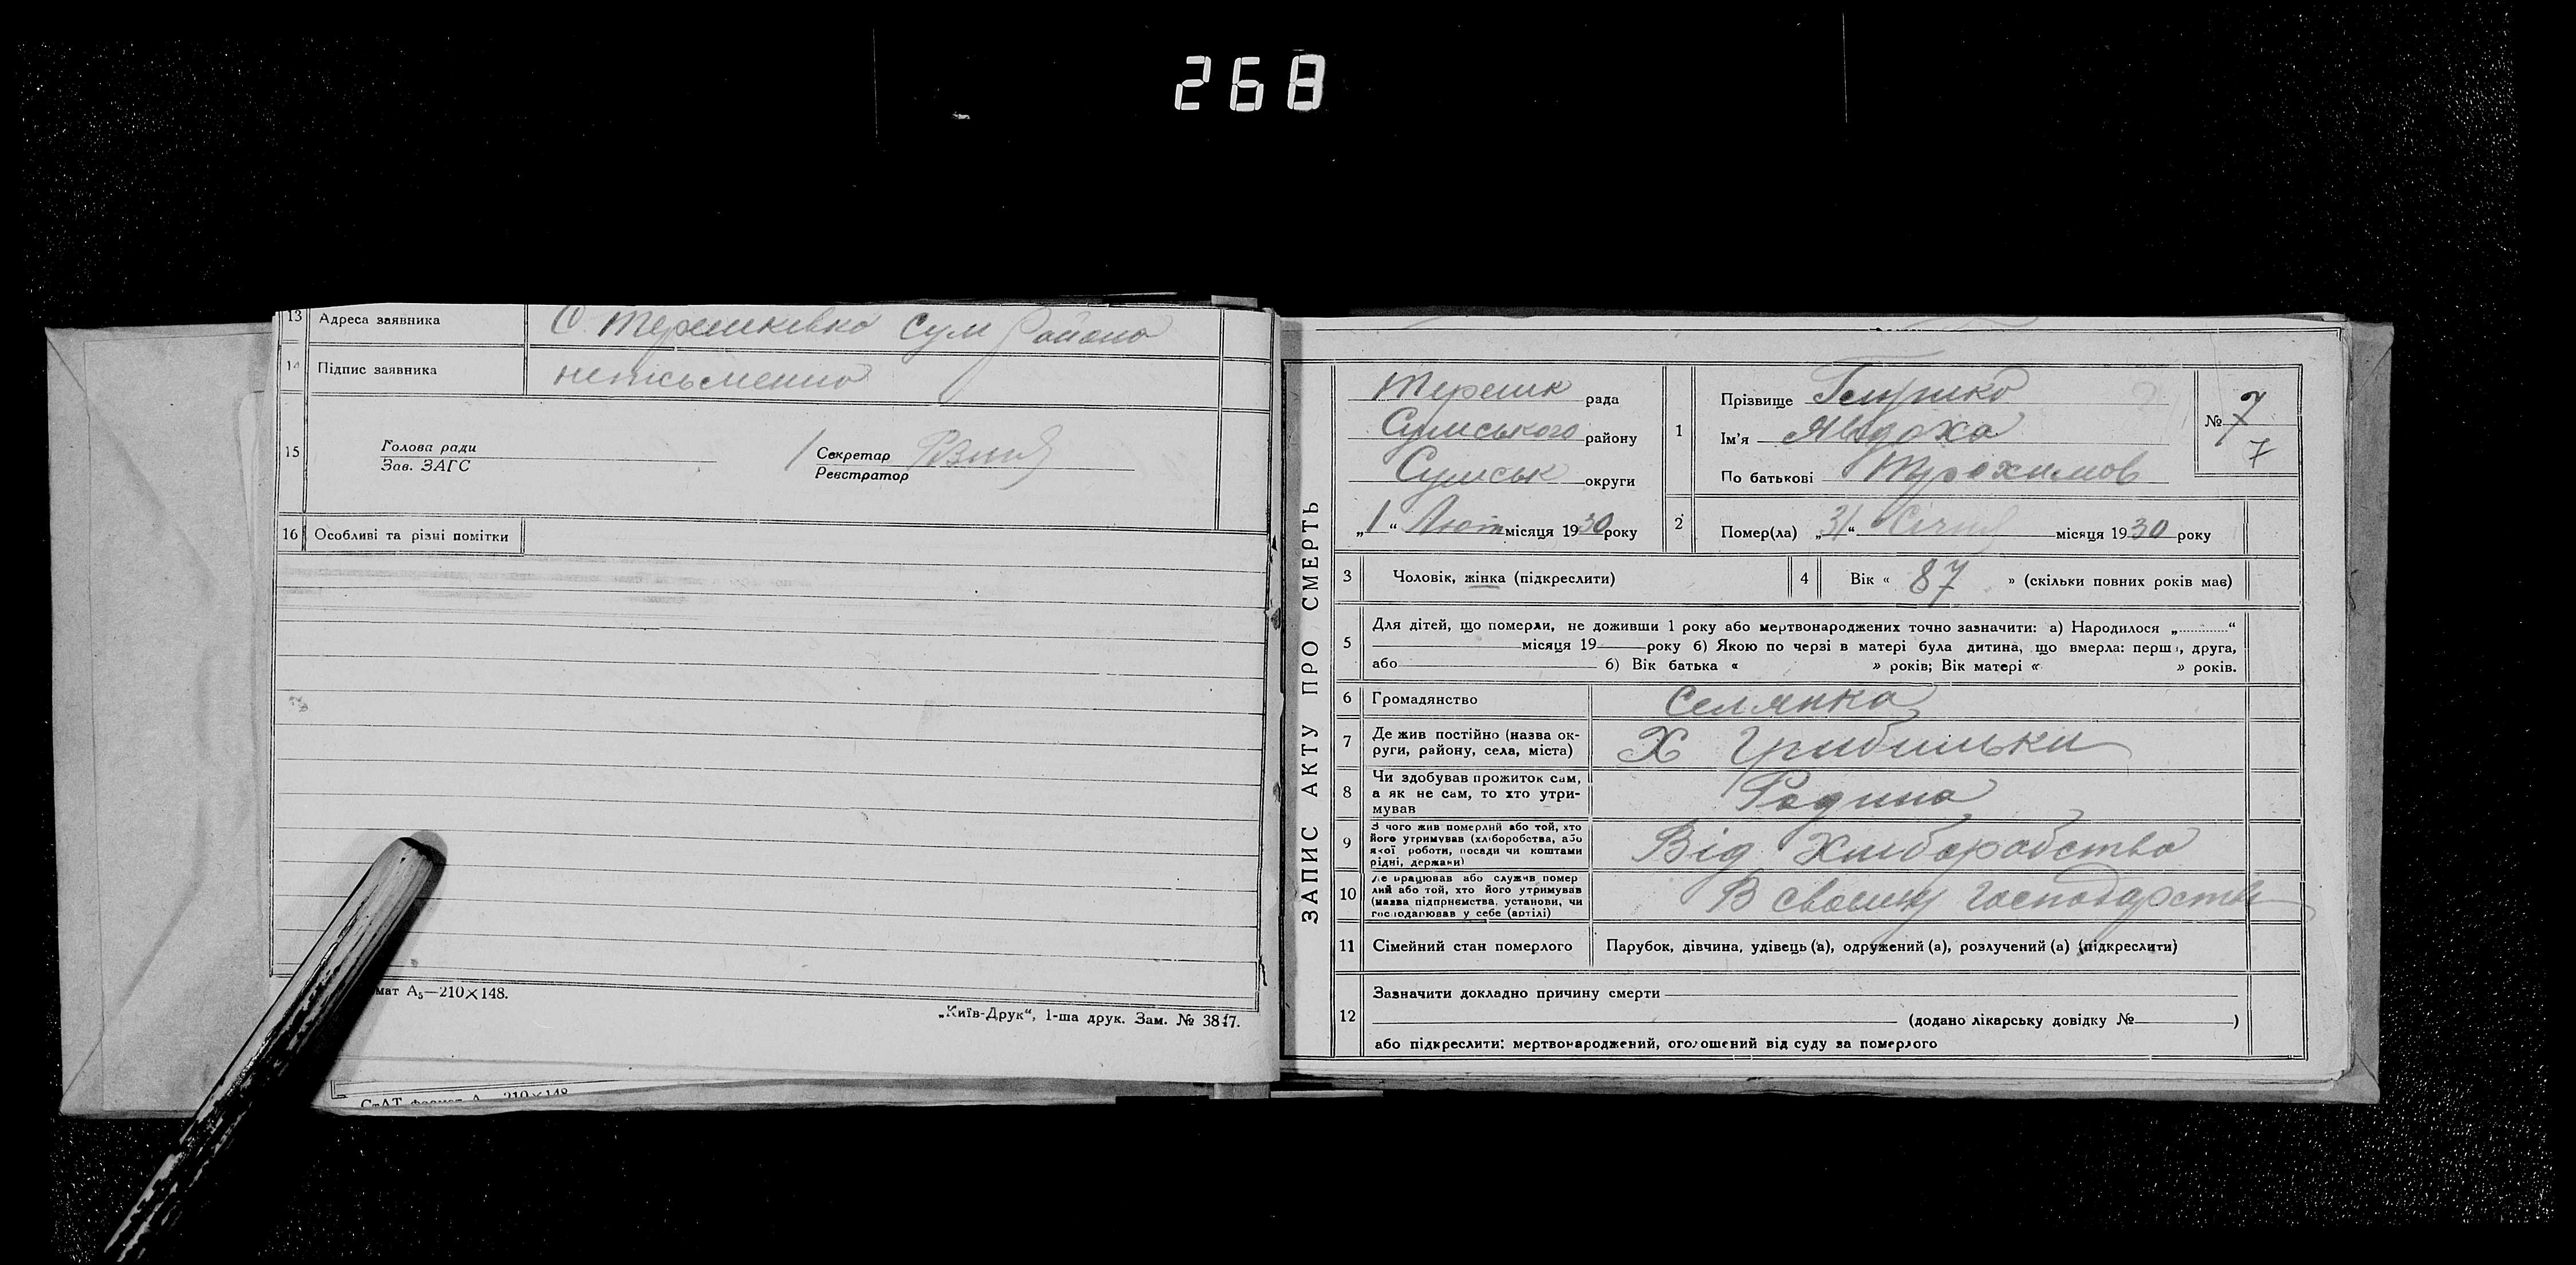 268
13 Адреса заявника С. Терешківка Сум Района
14 Підпис заявника неписьменна
15 Голова ради
Зав. ЗАГС
Секретар
Реєстратор
16 Особливі та різні помітки
мат А5—210×148.
„Київ-Друк“, 1-ша друк. Зам. № 3847.
СтАТ формат А 210×148
ЗАПИС АКТУ ПРО СМЕРТЬ
Терешк рада
Сумського району
Сумськ округи
„1“ Лют місяця 1930 року
1 Прізвище
Ім'я Явдоха
По батькові Трохимов
№ 7
7
2 Помер(ла) „31“ Січня місяця 1930 року
3 Чоловік, жінка (підкреслити)
4 Вік « 87 » (скільки повних років має)
5 Для дітей, що померли, не доживши 1 року або мертвонароджених точно зазначити: а) Народилося „............“
місяця 19 року б) Якою по черзі в матері була дитина, що вмерла: перша, друга,
або 6) Вік батька « » років; Вік матері « » років.
6 Громадянство Селянка
7 Де жив постійно (назва округи, району, села, міста) Х
8 Чи здобував прожиток сам,
а як не сам, то хто утри-
мував Родина
9 З чого жив померлий або той, хто
його утримував (хліборобства, або
якої роботи, посади чи коштами
рідні, держави) Від Хліборобства
10 Де працював або служив помер
лий або той, хто його утримував
(назва підприємства, установи, чи
господарював у себе (артілі) В своему господарстві
11 Сімейний стан померлого Парубок, дівчина, удівець (а), одружений (а), розлучений (а) (підкреслити)
12 Зазначити докладно причину смерти
(додано лікарську довідку № )
або підкреслити: мертвонароджений, оголошений від суду за померлого